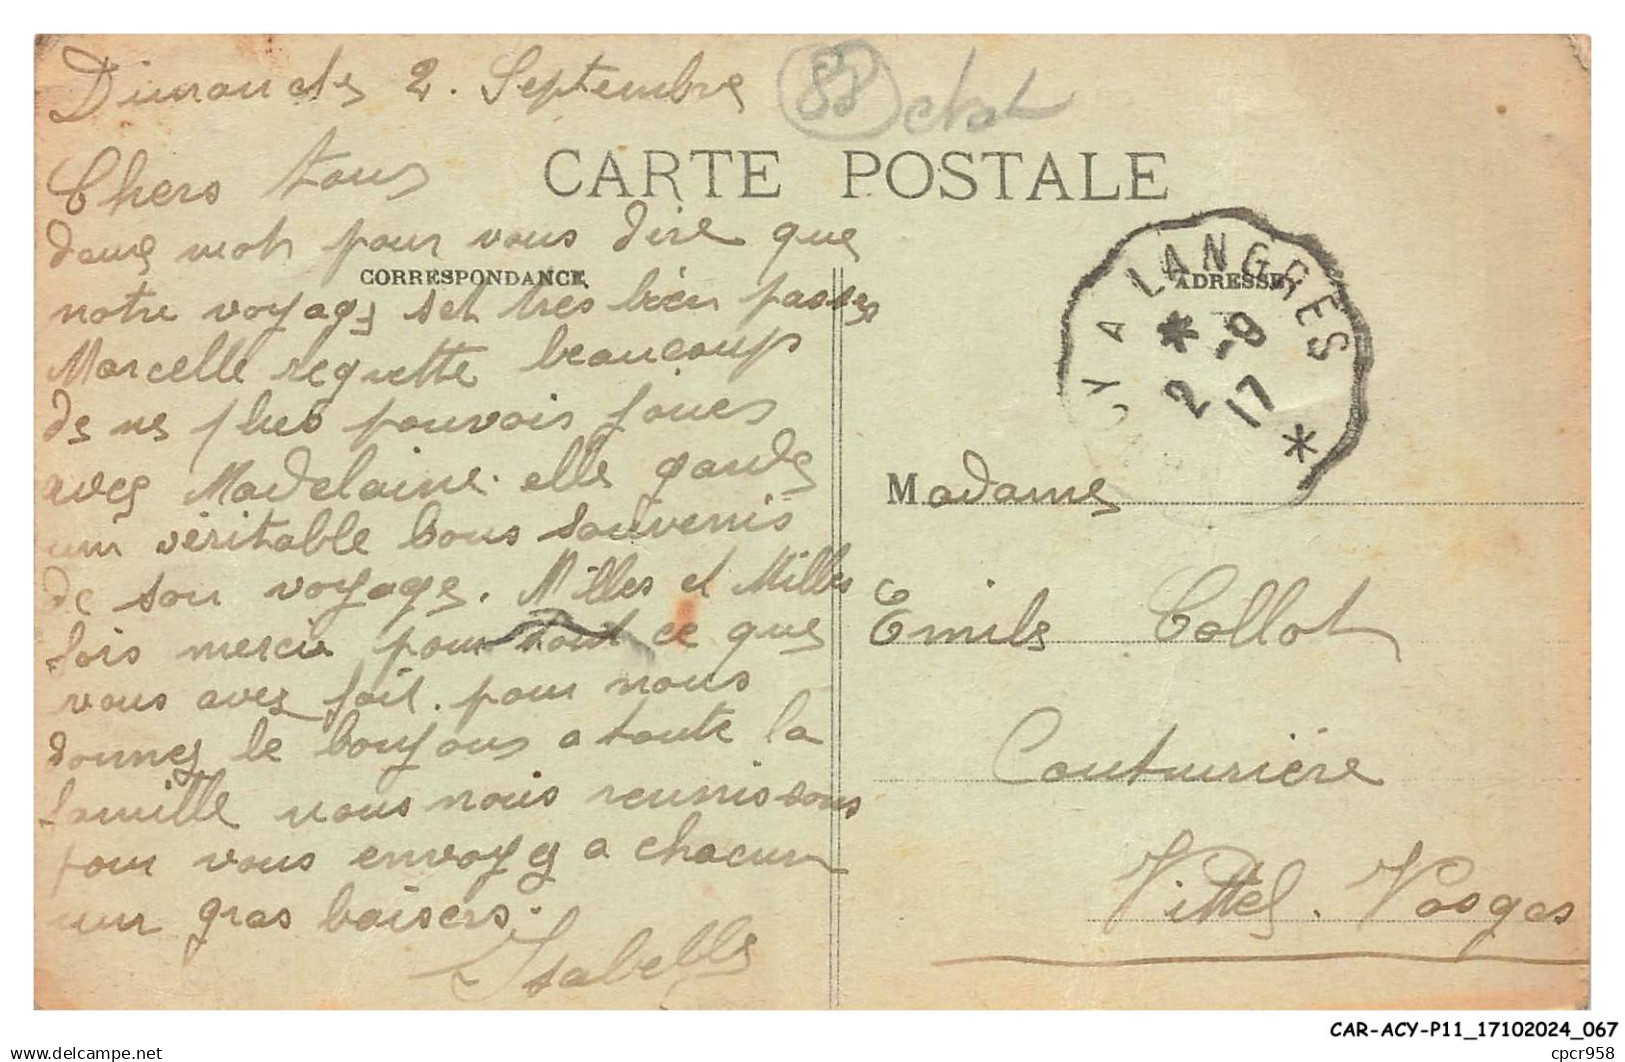 Dimanche 2. Septembre
88
CARTE POSTALE
Chers tous
deux mots pour vous dire que
CORRESPONDANCE
notre voyage set tres bien passes
Marcelle regrette beaucoup
de ne plus pouvois joues
avec Madelaine. elle garde
un véritable bous souvenis
de son voyage. Milles et Milles
fois mercie pour tout ce que
vous avez fait. pour nous
donnez le boujous a toute la
famille nous nous reunissons
pour vous envoyez a chacun
un gros baisers.
Isabelle
Y A LANGRES
2 -9
17
ADRESSE
Madame
Emile Collot
Couturière
Vittel. Vosges
CAR-ACY-P11_17102024_067
www.delcampe.net
cpcr958